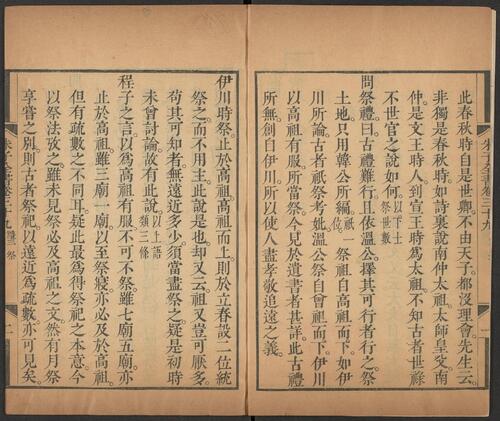 此春秋時自是世卿不由天子都沒理會先生云
非獨是春秋時如詩裏說南仲太祖太師皇父南
仲是文王時人到宣王時爲太祖不知古者世祿
不世官之說如何以下士祭世數
問祭禮曰古禮難行且依溫公擇其可行者行之祭
土地只用韓公所編祇一祭祖自高祖而下如伊
川所論古者祇祭考妣溫公祭自曾祖而下伊川
以高祖有服所當祭今見於遺書者甚詳此古禮
所無創自伊川所以使人盡孝敬追遠之義
朱子全書卷三十九
伊川時祭止於高祖高祖而上則於立春設二位統
祭之而不用主此說是也却又云祖又豈可厭多
苟其可知者無遠近多少須當盡祭之疑是初時
未曾討論故有此說以上語類三條
程子之言以爲高祖有服不可不祭雖七廟五廟亦
止於高祖雖三廟一廟以至祭寢亦必及於高祖
但有疏數之不同耳疑此最爲得祭祀之本意今
以祭法攷之雖未見祭必及高祖之文然有月祭
享嘗之別則古者祭祀以遠近爲疏數亦可見矣
朱子全書卷三十九 禮 祭